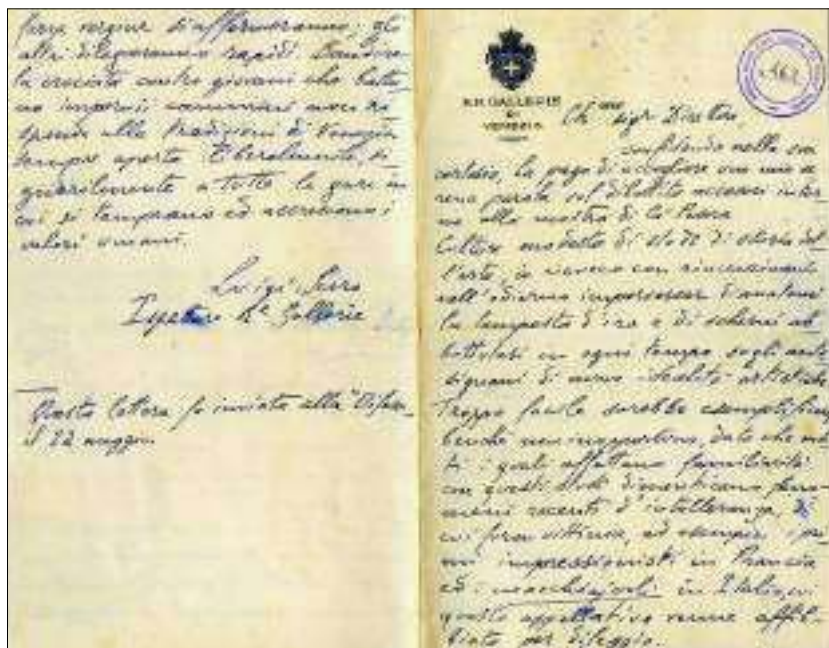 forze vergini si affermeranno; gli
altri dilegueranno rapidi. Bandire
la crociata contro giovani che
non
alle tradizioni di Venezia
sempre aperta liberalmente,
a tutte le gare in
cui si temprano ed accrescono i
valori umani.
Luigi Serra
Ispettore Rе Gallerie
Questa lettera fu inviata alla "Difesa"
il 22 maggio.
R.R. GALLERIE
DI
VENEZIA
162
Ch.mo sigr Direttore,
confidando nella sua
cortesia, la prego di accogliere una mia se
rena parola sul dibattito accesosi intor
no alla mostra di Ca' Pesaro
Cultore modesto di studi di storia del
l'arte, io
nell'odierna
la tempesta d'ira e di scherni ab
battutasi in ogni tempo sugli anti
signani di nuove idealità artistiche
Troppo facile sarebbe esemplificare
benchè non inopportuno, dato che mol
ti i quali affettano familiarità
con questi studi dimenticano feno
meni recenti d'intolleranza, di
cui furon vittime, ad esempio i pri
mi impressionisti in Francia
ed i macchiajoli in Italia, cui
questo appellativo venne affib
biato per dileggio.